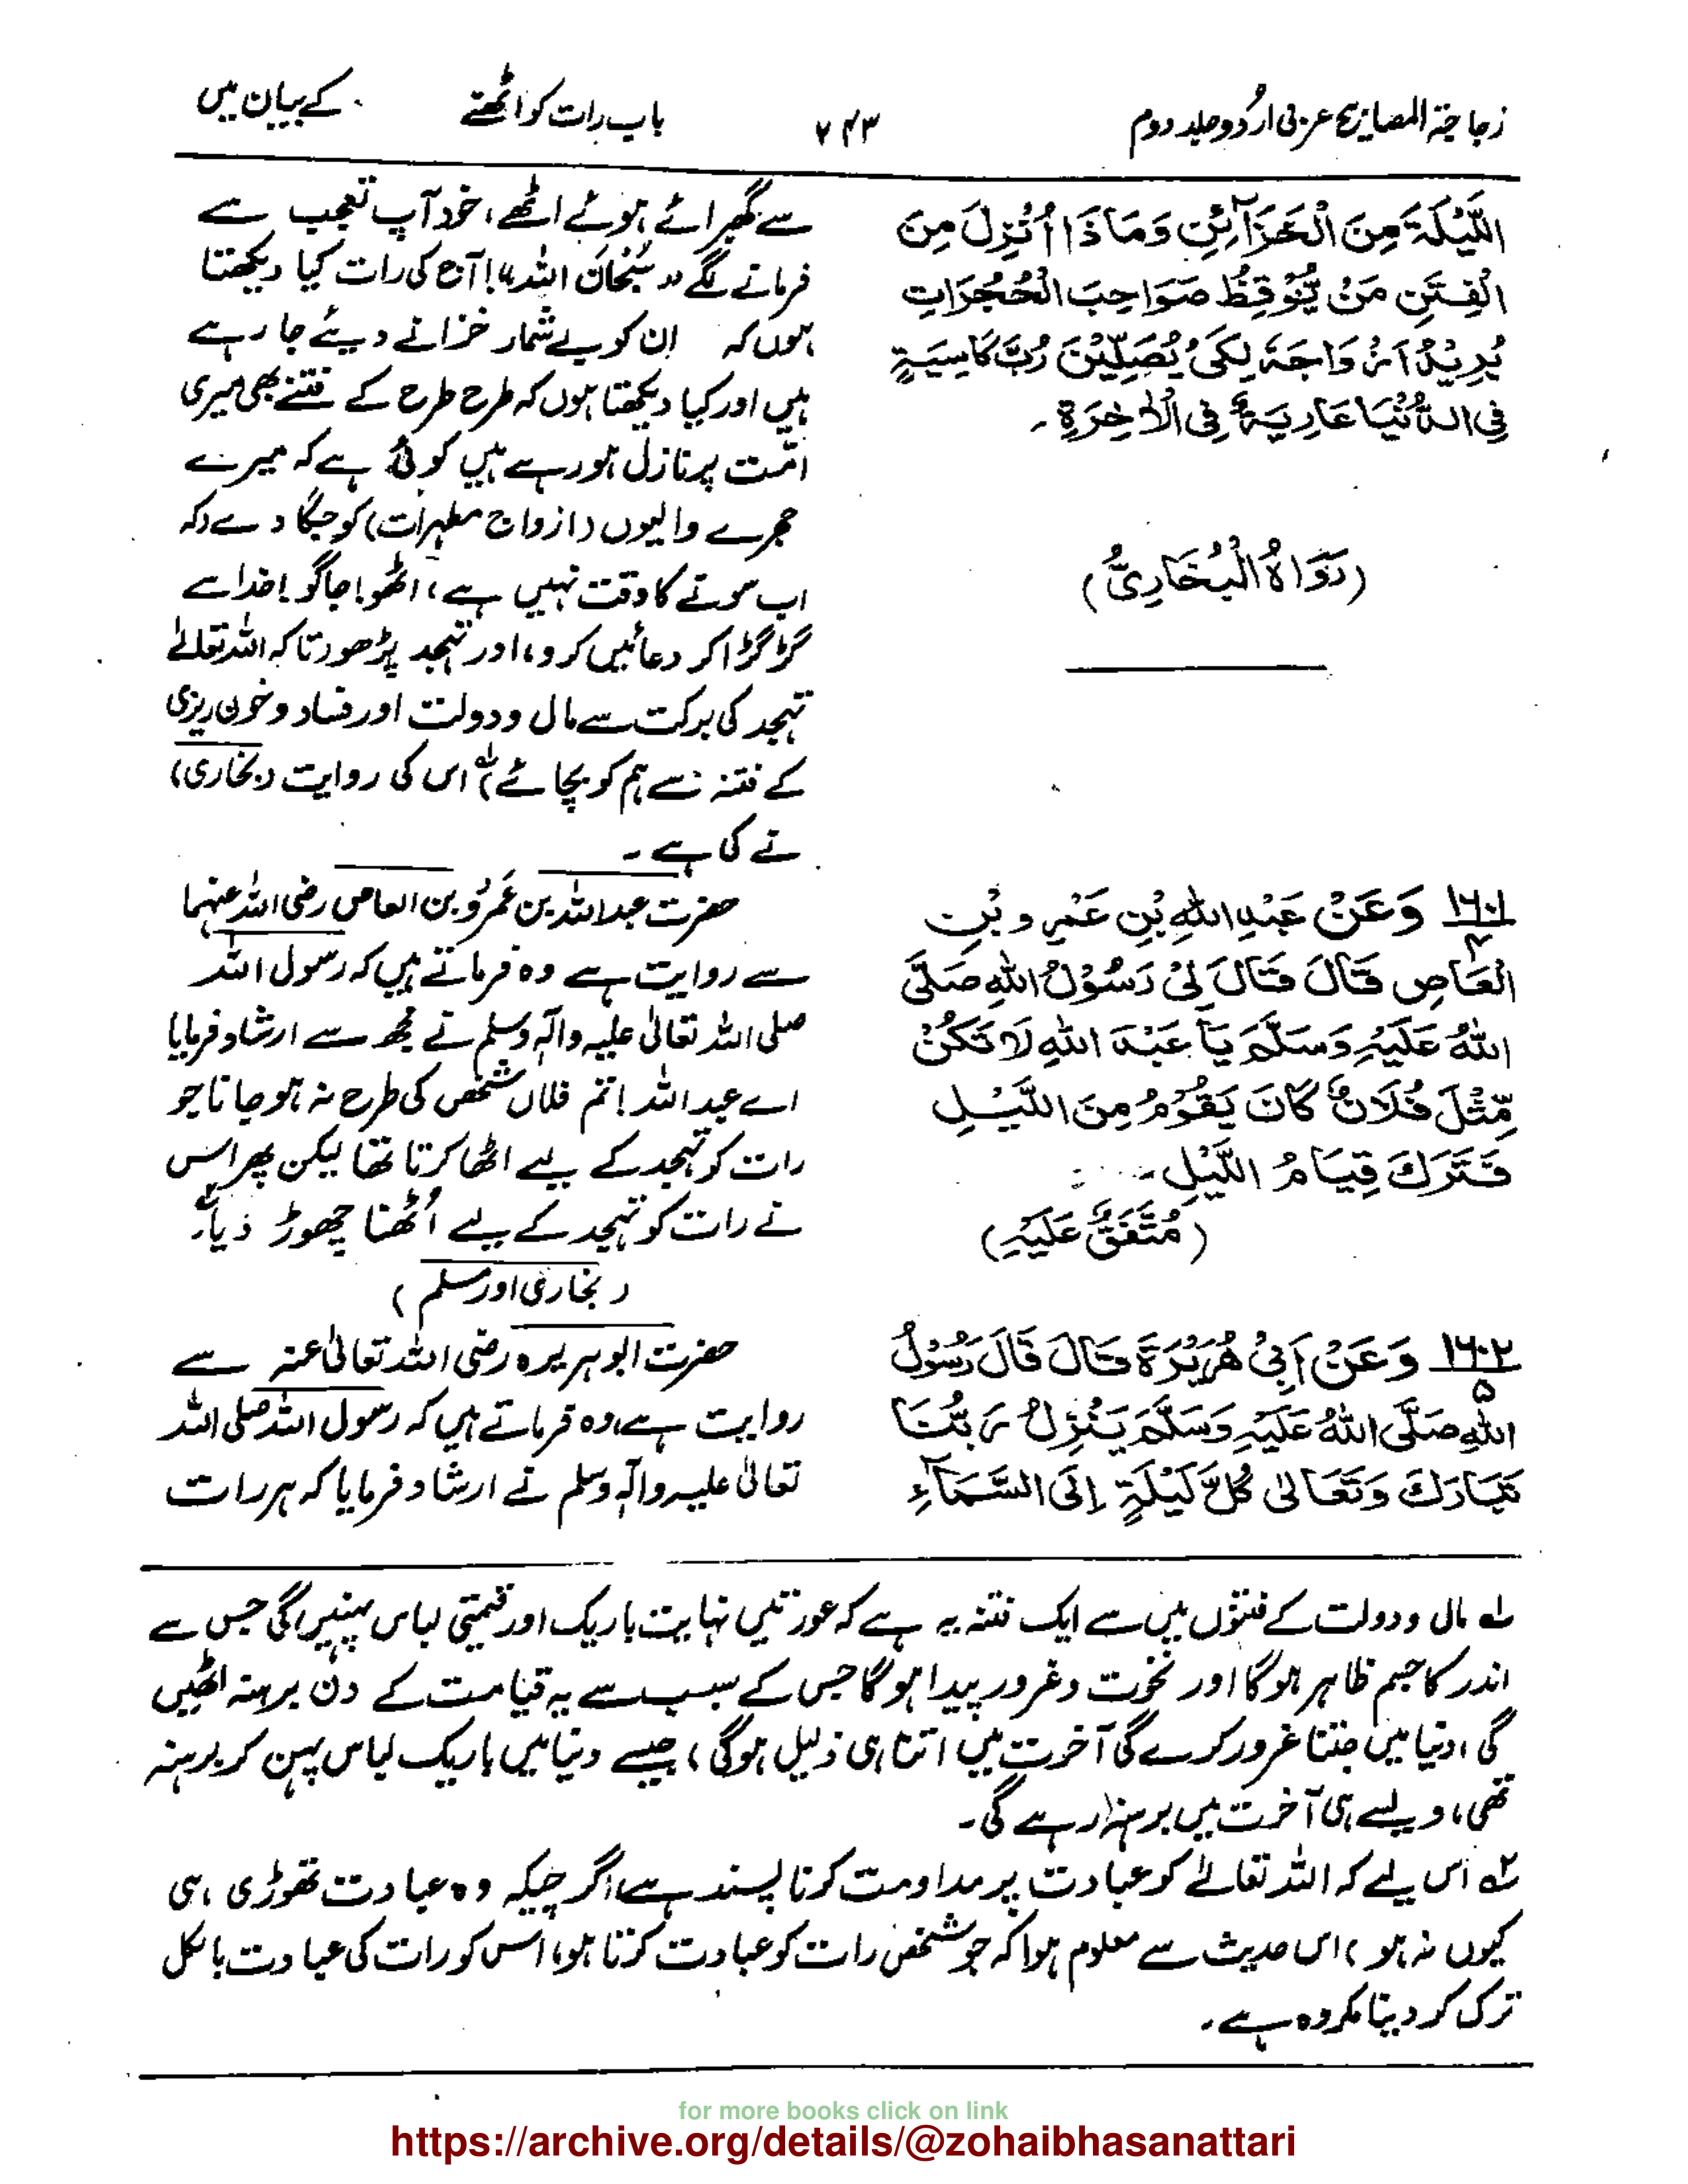 زجاجۃ المصابیح عربی اردو جلد دوم ۷۴۳ باب رات کو اٹھنے کے بیان میں
اللَّيْلَةَ مِنَ الْخَزَآئِنِ وَمَاذَا أُنْزِلَ مِنَ
الْفِتَنِ مَنْ يُّوْقِظُ صَوَاحِبَ الْحُجُرَاتِ
يُرِيْدُ اَزْوَاجَهٗ لِكَىْ يُصَلِّيْنَ رُبَّ كَاسِيَةٍ
فِى الدُّنْيَا عَارِيَةٌ فِى الْاٰخِرَةِ ۔
(رَوَاهُ الْبُخَارِىُّ)
سے گھبرائے ہوئے اٹھے، خود آپ تعجب سے
فرمانے لگے "سُبْحَانَ اللہ"! آج کی رات کیا دیکھتا
ہوں کہ ان کو بے شمار خزانے دیئے جا رہے
ہیں اور کیا دیکھتا ہوں کہ طرح طرح کے فتنے بھی میری
امت پر نازل ہو رہے ہیں کوئی ہے کہ میرے
حجرے والیوں (ازواج مطہرات) کو جگا دے (کہ
اب سونے کا وقت نہیں ہے، اٹھو! جاگو! خدا سے
گڑگڑا کر دعائیں کرو، اور تہجد پڑھو (تاکہ اللہ تعالےٰ
تہجد کی برکت سے مال و دولت اور فساد و خون ریزی
کے فتنہ سے ہم کو بچائے) ؎۱ اس کی روایت (بخاری)
نے کی ہے ۔
۱۶۰۱/۴ وَعَنْ عَبْدِ اللهِ بْنِ عَمْرِو بْنِ
الْعَاصِ قَالَ قَالَ لِىْ رَسُوْلُ اللهِ صَلَّى
اللهُ عَلَيْهِ وَسَلَّمَ يَا عَبْدَ اللهِ لَا تَكُنْ
مِّثْلَ فُلَانٍ كَانَ يَقُوْمُ مِنَ اللَّيْلِ
فَتَرَكَ قِيَامُ اللَّيْلِ ۔
(مُتَّفَقٌ عَلَيْهِ)
حضرت عبداللہ بن عَمرُو بن العاص رضی اللہ عنہما
سے روایت ہے وہ فرماتے ہیں کہ رسول اللہ
صلی اللہ تعالیٰ علیہ وآلہ وسلم نے مجھ سے ارشاد فرمایا
اے عبداللہ! تم فلاں شخص کی طرح نہ ہو جانا جو
رات کو تہجد کے لیے اٹھا کرتا تھا لیکن پھر اس
نے رات کو تہجد کے لیے اُٹھنا چھوڑ دیا ؎۲۔
(بخاری اور مسلم)
۱۶۰۲/۵ وَعَنْ اَبِىْ هُرَيْرَةَ قَالَ قَالَ رَسُوْلُ
اللهِ صَلَّى اللهُ عَلَيْهِ وَسَلَّمَ يَنْزِلُ رَبُّنَا
تَبَارَكَ وَتَعَالٰى كُلَّ لَيْلَةٍ اِلَى السَّمَآءِ
حضرت ابوہریرہ رضی اللہ تعالیٰ عنہ سے
روایت ہے، وہ فرماتے ہیں کہ رسول اللہ صلی اللہ
تعالیٰ علیہ وآلہ وسلم نے ارشاد فرمایا کہ ہر رات
؎۱ مال و دولت کے فتنوں میں سے ایک فتنہ یہ ہے کہ عورتیں نہایت باریک اور قیمتی لباس پہنیں گی جس سے
اندر کا جسم ظاہر ہو گا اور نخوت و غرور پیدا ہو گا جس کے سبب سے یہ قیامت کے دن برہنہ اٹھیں
گی، دنیا میں جتنا غرور کرے گی آخرت میں اتنا ہی ذلیل ہوگی، جیسے دنیا میں باریک لباس پہن کر برہنہ
تھی، ویسے ہی آخرت میں برہنہ رہے گی۔
؎۲ اس لیے کہ اللہ تعالےٰ کو عبادت پر مداومت کرنا پسند ہے، اگرچیکہ وہ عبادت تھوڑی ہی
کیوں نہ ہو، اس حدیث سے معلوم ہوا کہ جو شخص رات کو عبادت کرتا ہو، اس کو رات کی عبادت بالکل
ترک کر دینا مکروہ ہے۔
for more books click on link
https://archive.org/details/@zohaibhasanattari